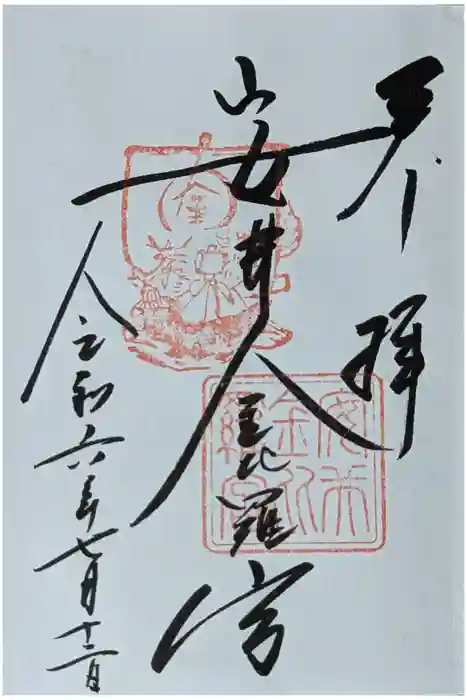 奉拝
安井金比羅宮
令和六年七月十二日
安井金比羅宮